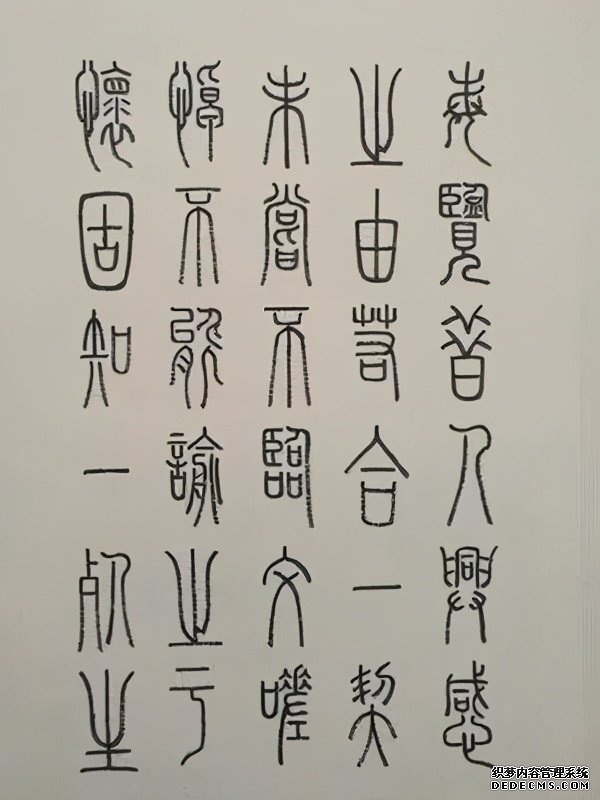 每覽昔人興感
之由若合一契
未嘗不臨文嗟
悼不能諭之于
懷固知一死生
织梦内容管理系统
DEDECMS.COM